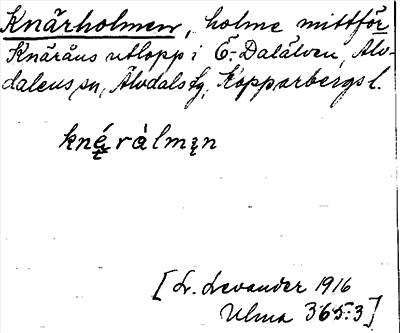 Knärholmen, holme mitt för
Knäråns utlopp i Ö. Dalälven, Älv-
dalens sn, Älvdals tg, Kopparbergs l.
knę́rålmęn
[L. Levander 1916
Ulma 365:3]